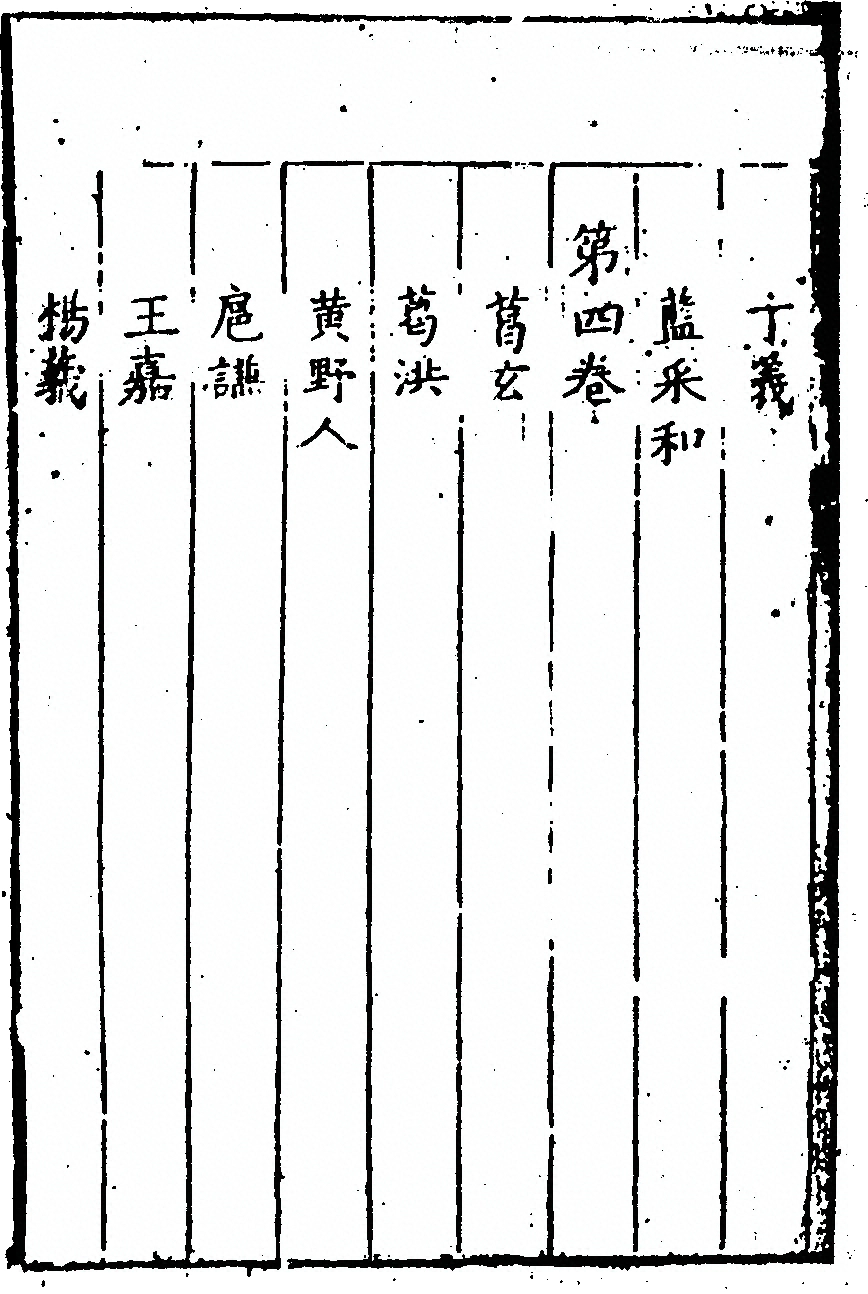 藍采和
第四卷
葛玄
葛洪
黄野人
扈謙
王嘉
楊羲